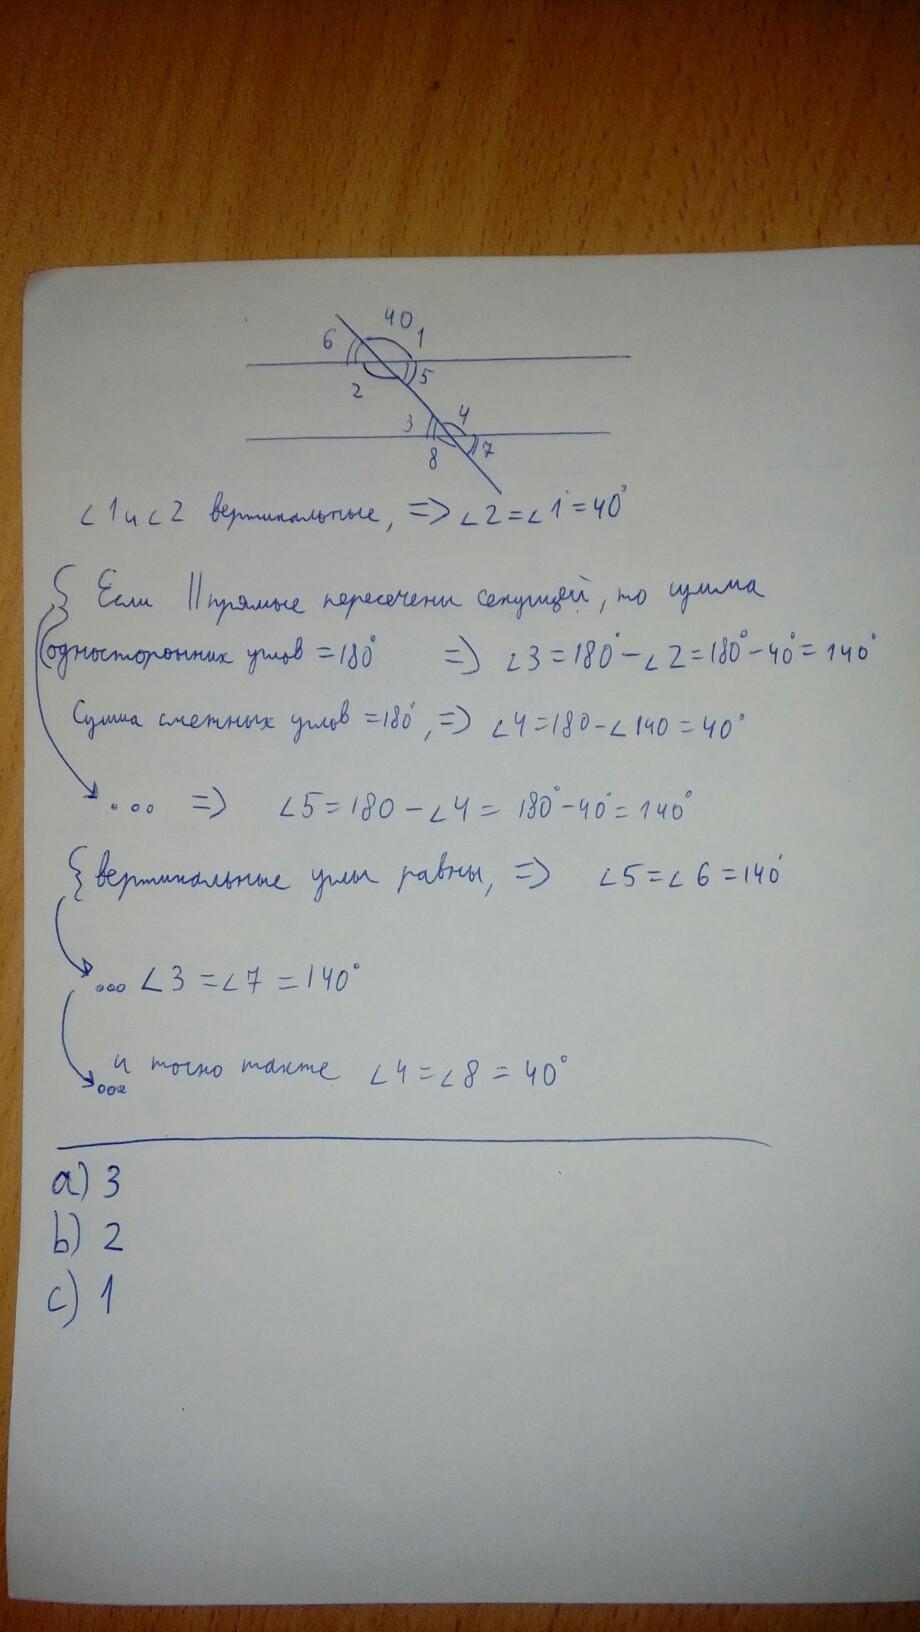 40
6 1
2 5
3 4
8 7
∠1 и ∠2 вертикальные, => ∠2=∠1=40°
{ Если || прямые пересечены секущей, то сумма
односторонних углов =180° => ∠3=180°-∠2=180°-40°=140°
Сумма смежных углов =180°, => ∠4=180-∠140=40°
... => ∠5=180-∠4= 180°-40°=140°
{ вертикальные углы равны, => ∠5=∠6=140°
... ∠3=∠7=140°
... и точно также ∠4=∠8=40°
a) 3
b) 2
c) 1